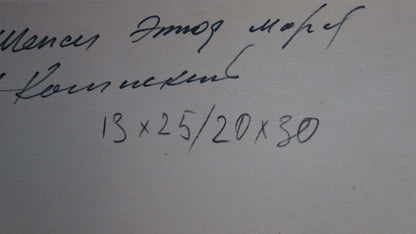 Шепси Этюд моря
Колинский
13×25/20×30